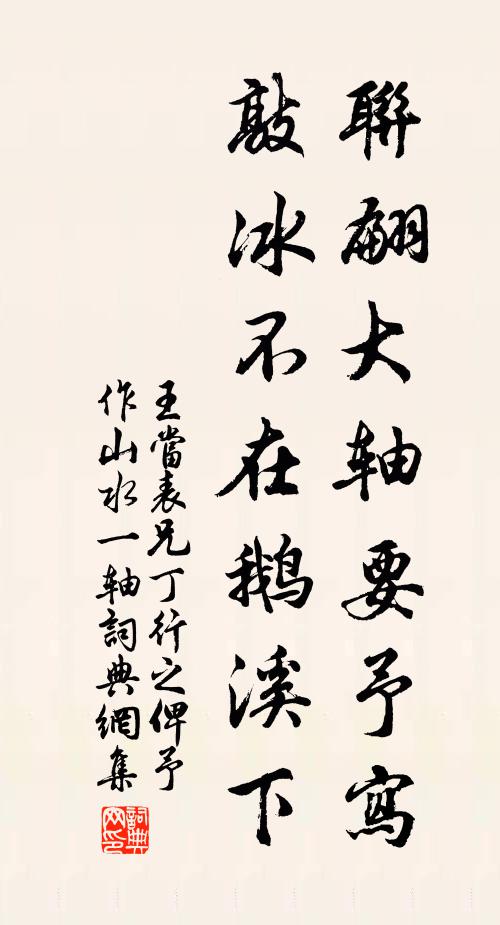 聯翩大轴要予寫
敲冰不在鵝溪下
王當表兄丁行之俾予
作山水一轴詞典網集
詞典网印